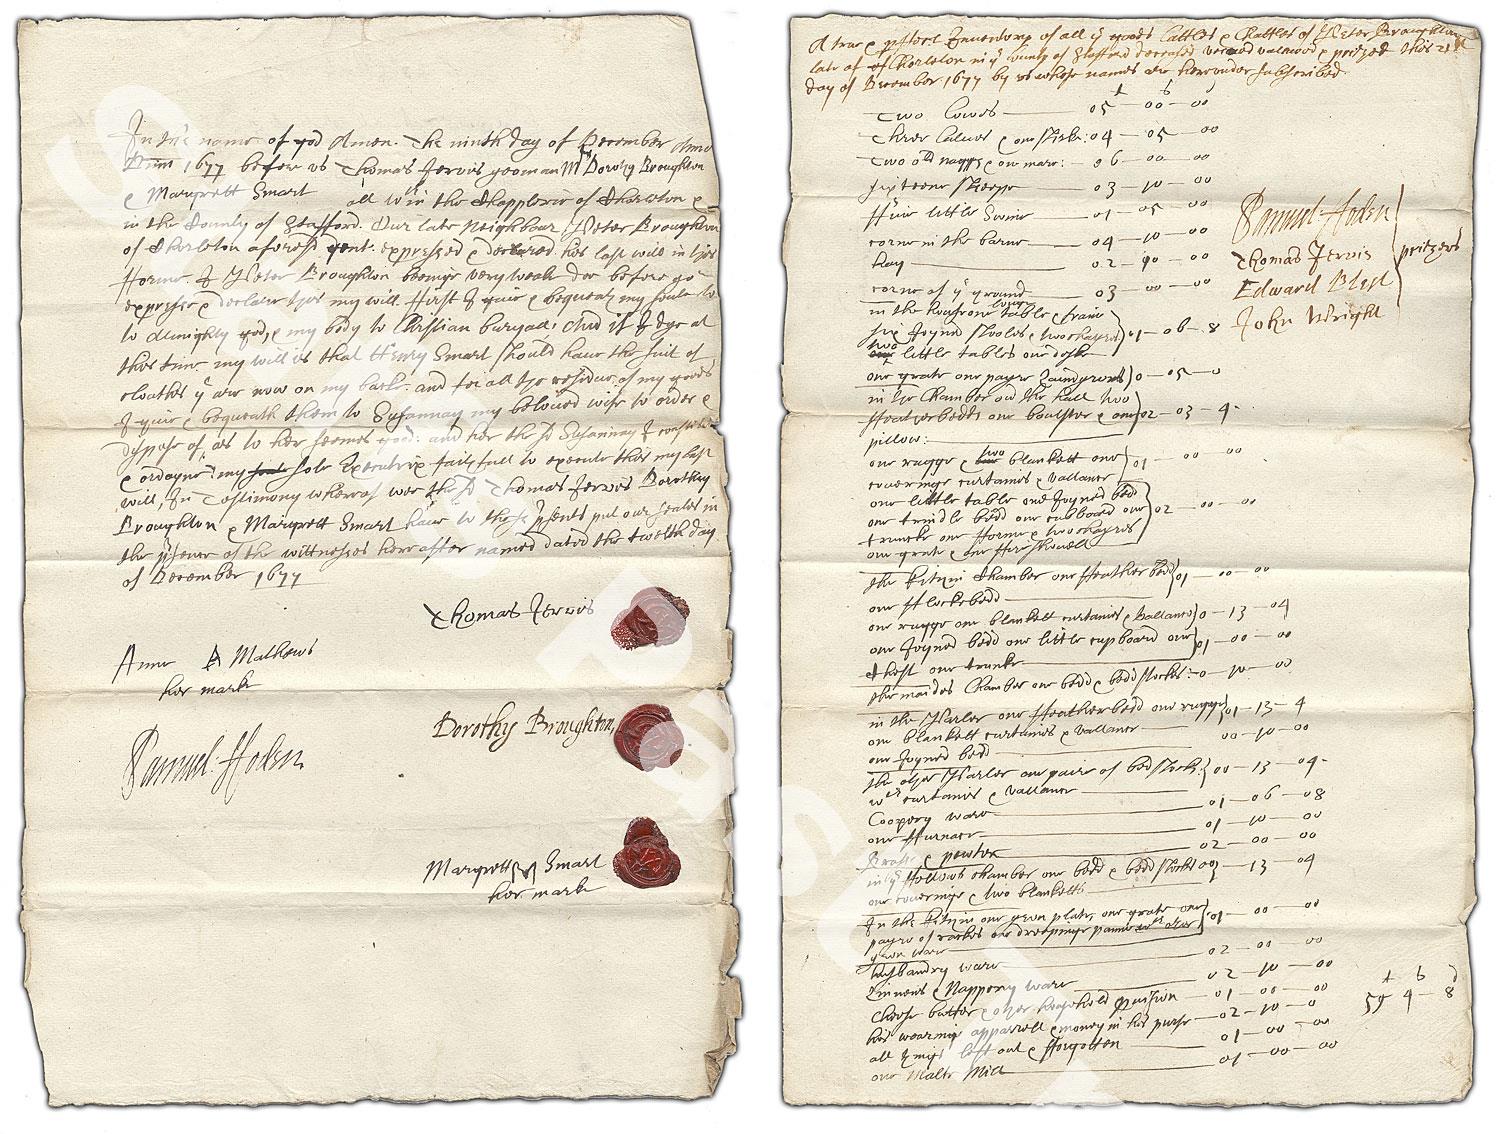 In the name of god Amen. The ninth day of December Anno
Dmi 1677 before us Thomas Jervis yeoman Mrs Dorothy Broughton
& Margrett Smart all wthin the Chappelrie of Chorleton &
in the County of Stafford. Our late neighbour Peter Broughton
of Chorleton aforesd gent: expressed & declared his last will in this
fforme. I Peter Broughton beinge very weak doe before god
expresse & declare this my will. ffirst I giue & bequeath my soule to
to Almighty god, & my body to Christian buryall: And if I dye at
this time my will is that Henry Smart should haue the suit of
cloathes yt are now on my back: and for all the residue of my goods
I giue & bequeath them to Susannay my beloued wife to order &
dispose of, as to her seemes good: and her the sd Susannay I
& ordayne my sole sole Executrix faithfull to execute this my last
will, In Testimony whereof wee the sd Thomas Jervis Dorothy
Broughton & Margrett Smart haue to these psents put our seales in
the psence of the wittnesses hereafter named dated the twelth day
of December 1677
Thomas Jervis
Anne A Mathews
her mark
Dorothy Broughton,
Samuel Hoden
Margrett Smart
her marke
A true & pffect Inventory of all ye goods Cattles & Chattles of Peter Broughton
late of of Chorleton in ye County of Stafford deceased viewed valewed & prized this 21th
day of December 1677 by us whose names are hereunder subscribed
Two Cowes 05 — 00 — 00
Three Calues & one stirke: 04 — 05 — 00
Two old naggs & on mare: — 06 — 00 — 00
sixteene sheepe 03 — 10 — 00
ffiue little Swine 01 — 05 — 00
corne in the barne 04 — 10 — 00
hay 02 — 10 — 00
corne of ye ground 03 — 00 — 00
Samuel Hoden
Thomas Jervis
Edward
John Wright
prizers
in the house one long table & frame
six Joyned stooles & two chayres 01 — 06 — 8
two little tables one deske
one grate one payre Laundyrons 0 — 05 — 0
in the Chamber ou the hall two
ffeatherbedds one boulster & one 02 — 03 — 4
pillow:
one rugge & two blankett one 01 — 00 — 00
coveringe curtaines & vallance
one little table one Joyned bedd
one trindle bedd one cubboard one 02 — 00 — 00
truncke one fforme & two chayres
one grate & one ffireshovell
the kitchin Chamber one ffeather bedd 01 — 00 — 00
one fflockebedd
one rugge one blankett curtaines & vallance 0 — 13 — 04
one Joyned bedd one little cupboard one 01 — 00 — 00
Chest one trunke
the maides Chamber one bedd & bedd stockes: 0 — 10 — 00
in the Parler one ffeatherbedd one rugge 01 — 13 — 4
one blankett curtaines & vallance
one Joyned bedd 00 — 10 — 00
the other Parler one paire of bedstocks: 00 — 13 — 04
wth curtaines & vallance
Coopery ware 01 — 06 — 08
one ffurnace 01 — 10 — 00
Brasse & pewter 02 — 00 — 00
in ye ffellows chamber one bedd & bedd stocks 00 — 13 — 04
one coveringe & two blanketts
In the kitchin one yron plate, one grate one
payre of rackes one dreepinge panne wth other 01 — 00 — 00
yron ware
Husbandry ware 02 — 00 — 00
Linnens & Nappery ware 02 — 10 — 00
Cheese butter & other household pvission 01 — 00 — 00
his wearinge apparrell & money in his purse 02 — 10 — 0
all things left out & fforgotten 01 — 00 — 00
one Malte Mill 01 — 00 — 00
59 — 4 — 8